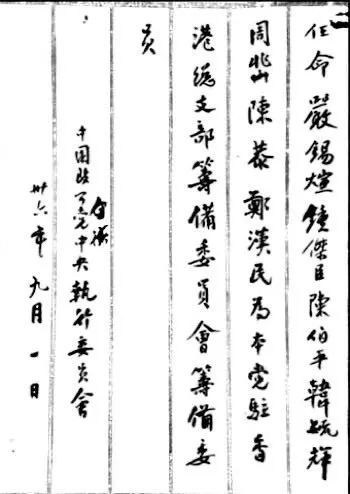 任命嚴錫煊鍾傑臣陳伯平韓毓輝
周兆山陳恭鄭漢民為本党駐香
港總支部籌備委員會籌備委
員
中国政 党中央執行委員會
卅六年九月一日